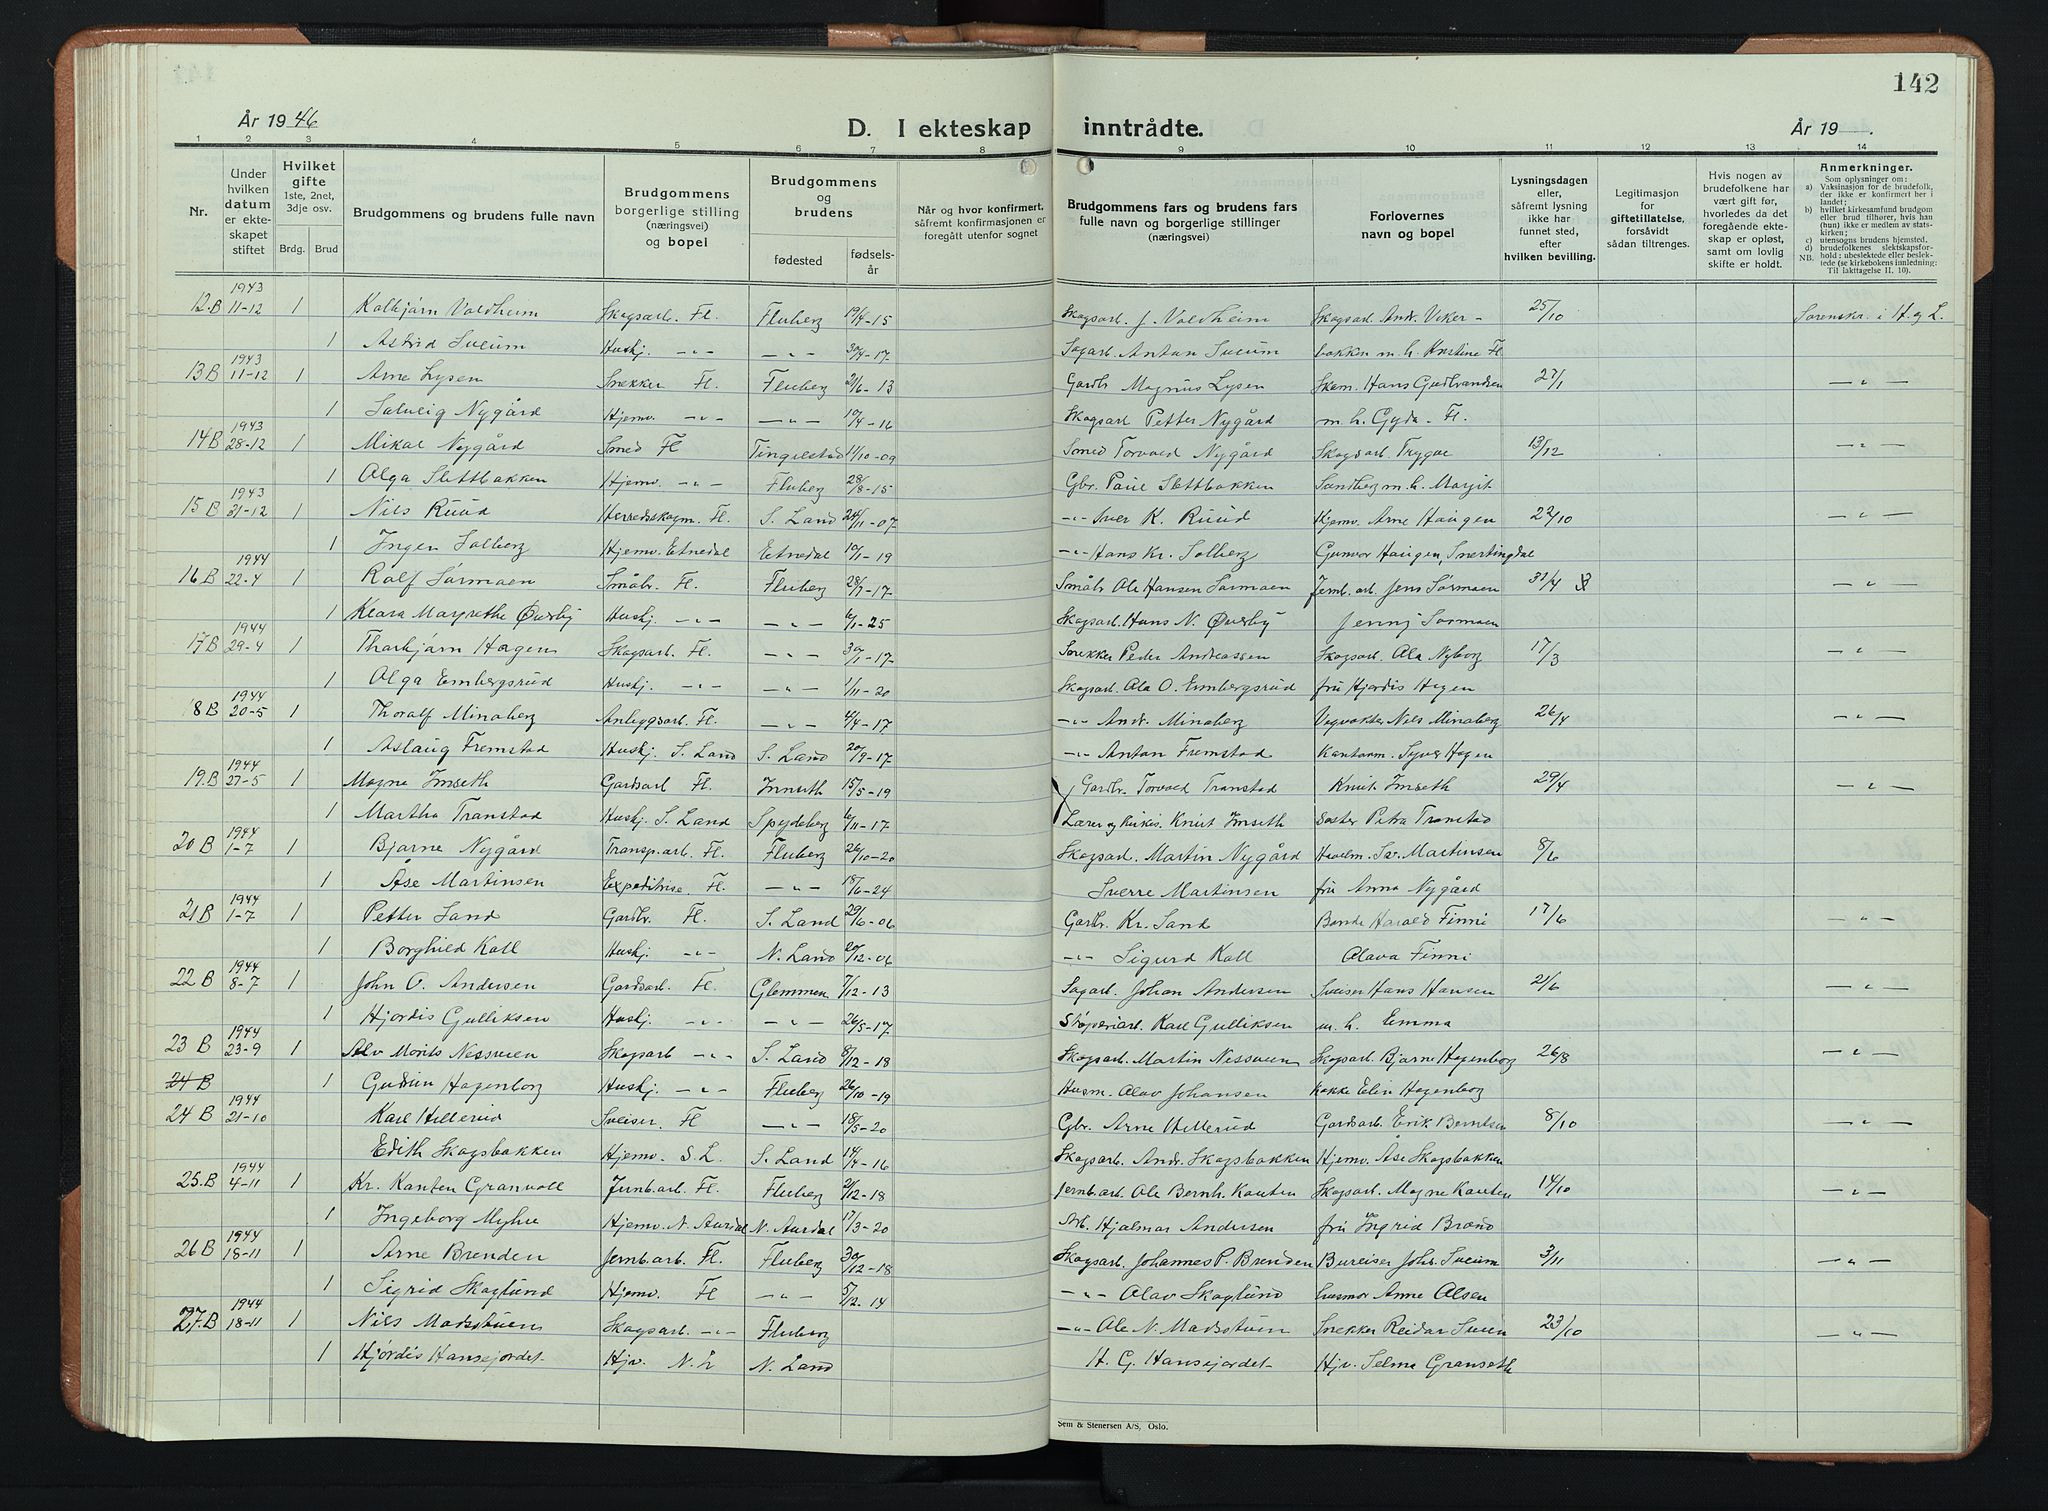 142
År 1946
D. I ekteskap inntrådte.
År 19
1 2 3 4 5 6 7 8 9 10 11 12 13 14
Nr.
Under hvilken datum er ekteskapet stiftet
Hvilket gifte 1ste, 2net, 3dje osv.
Brdg. Brud
Brudgommens og brudens fulle navn
Brudgommens borgerlige stilling (næringsvei) og bopel
Brudgommens og brudens
fødested
fødselsår
Når og hvor konfirmert, såfremt konfirmasjonen er foregått utenfor sognet
Brudgommens fars og brudens fars fulle navn og borgerlige stillinger (næringsvei)
Forlovernes navn og bopel
Lysningsdagen eller, såfremt lysning ikke har funnet sted, efter hvilken bevilling.
Legitimasjon for giftetillatelse, forsåvidt sådan tiltrenges.
Hvis nogen av brudefolkene har vært gift før, hvorledes da det foregående ekteskap er opløst, samt om lovlig skifte er holdt.
Anmerkninger.
Som oplysninger om:
a) Vaksinasjon for de brudefolk, der ikke er konfirmert her i landet;
b) hvilket kirkesamfund brudgom eller brud tilhører, hvis han (hun) ikke er medlem av statskirken;
c) utensogns brudens hjemsted.
d) brudefolkenes slektskapsforhold: ubeslektede eller beslektede (se kirkebokens innledning:
NB. Til iakttagelse II. 10).
12.B 1943 11-12 1 Kolbjørn Voldheim Skogsarb. Fl. Fluberg 19/4-15 Skogsarb. J. Voldheim Skogsarb. Andr. Viker- 25/10 Sorenskr. i H. og L.
1 Astrid Sveum Huskj. -"- -"- 30/4-17 Sagarb. Anton Sveum bakken m. h. Kristine Fl.
13 B 1943 11-12 1 Arne Lysen Snekker Fl. Fluberg 21/6-13 Gardbr. Magnus Lysen Skom. Hans Gudbrandsen 27/1 -"-
1 Solveig Nygård Hjemv. -"- -"- 10/4-16 Skogsarb. Petter Nygård m. h. Gyda - Fl.
14 B 1943 28-12 1 Mikal Nygård Smed Fl Tingelstad 14/10-09 Smed Torvald Nygård Skogsarb. Trygve 13/12 -"-
1 Olga Slettbakken Hjemv. -"- Fluberg 28/8-15 Gbr. Paul Slettbakken Sandberg m. h. Margit
15 B 1943 31-12 1 Nils Ruud Herredskogm. Fl. S. Land 24/11-07 -"- Iver K. Ruud Hjemv. Arne Haugen 22/10 -"-
1 Inger Solberg Hjemv. Etnedal Etnedal 10/1-19 -"- Hans Kr. Solberg Gunvor Haugen, Snertingdal
16 B 1944 22-4 1 Rolf Sørmoen Småbr. Fl. Fluberg 28/7-17 Småbr. Ole Hansen Sørmoen Jernb. arb. Jens Sørmoen 31/4 -"-
1 Klara Margrethe Øverby Huskj. -"- -"- 6/1-25 Skogsarb. Hans N. Øverby Jenny Sørmoen
17 B 1944 29-4 1 Thorbjørn Hagen Skogsarb. Fl. -"- 30/1-17 Snekker Peder Andreassen Skogsarb. Ola Nyborg 17/3 -"-
1 Olga Embergsrud Huskj. -"- -"- 1/11-20 Skogsarb. Ola O. Embergsrud fru Hjørdis Hagen
18 B 1944 20-5 1 Thoralf Minaberg Anleggsarb. Fl. -"- 4/4-17 -"- Andr. Minaberg Vegvokter Nils Minaberg 26/4 -"-
1 Aslaug Fremstad Huskj. S. Land S. Land 20/9-17 -"- Anton Fremstad Kantorm. Syver Hagen
19.B 1944 27-5 1 Magne Imseth Gardsarb Fl. 15/5-19 Gardbr. Torvald Transtad Knut Imseth 29/4 -"-
1 Martha Transtad Huskj. S. Land Spydeberg 6/11-17 Lærer og Kirkes. Knut Imseth søster Petra Transtad
20 B 1944 1-7 1 Bjarne Nygård Transp.arb. Fl. Fluberg 26/10-20 Skogsarb. Martin Nygård Sv. Martinsen 8/6
1 Åse Martinsen Expeditrise. Fl. -"- 18/6-24 Sverre Martinsen fru Anna Nygård
21 B 1944 1-7 1 Petter Sand Gardbr. Fl. S. Land 29/6-06 Gardbr. Kr. Sand Bonde Harald Finni 17/6 -"-
1 Borghild Koll Huskj. -"- N. Land 20/12-06 -"- Sigurd Koll Olava Finni
22 B 1944 8-7 1 John O. Andersen Gardsarb. Fl. Glemmen 7/12-13 Sagarb. Johan Andersen Sveiser Hans Hansen 21/6 -"-
1 Hjørdis Gulliksen Huskj. -"- -"- 26/5-17 Støperiarb. Karl Gulliksen m. h. Emma
23 B 1944 23-9 1 Alv Morits Nessveen Skogsarb -"- S. Land 8/12-18 Skogsarb. Martin Nessveen Skogsarb. Bjarne Hagenborg 26/8 -"-
24 B 1 Gudrun Hagenborg Huskj. -"- Fluberg 26/10-19 Husm. Olav Johansen Kokke Elin Hagenborg
24 B 1944 21-10 Karl Hillerud Sveiser. Fl -"- 18/5-20 Gbr. Arne Hillerud Gardsarb. Erik Berntsen 8/10 -"-
Edith Skogsbakken Hjemv. S L. S. Land 14/4-16 Skogsarb. Andr. Skogsbakken Hjemv. Åse Skogsbakken
25.B 1944 4-11 1 Kr. Kanten Granvoll Jernb.arb. Fl. Fluberg 2/12-18 Jernb.arb. Ole Bernh. Kanten Skogsarb. Magne Kanten 14/10 -"-
1 Ingeborg Myhre Hjemv. N. Aurdal N. Aurdal 17/3-20 Arb. Hjalmar Andersen fru Ingrid Brand
26 B 1944 18-11 1 Arne Brenden Jernb.arb. Fl. Fluberg 30/12-18 Skogsarb. Johannes P. Brenden Bureiser Johs. Sveum 3/11 -"-
1 Sigrid Skoglund Hjemv. Fl -"- 5/12-14 -"- Olav Skoglund husmor Anne Olsen
27.B 1944 18-11 1 Nils Madsstuen Skogsarb. -"- Fluberg -"- Ole N. Madsstuen Snekker Reidar Sveen 23/10 -"-
1 Hjørdis Hansejordet Hjv. N. L N. Land H. G. Hansejordet Hjv. Selma Granseth
Sem & Stenersen A/S, Oslo.